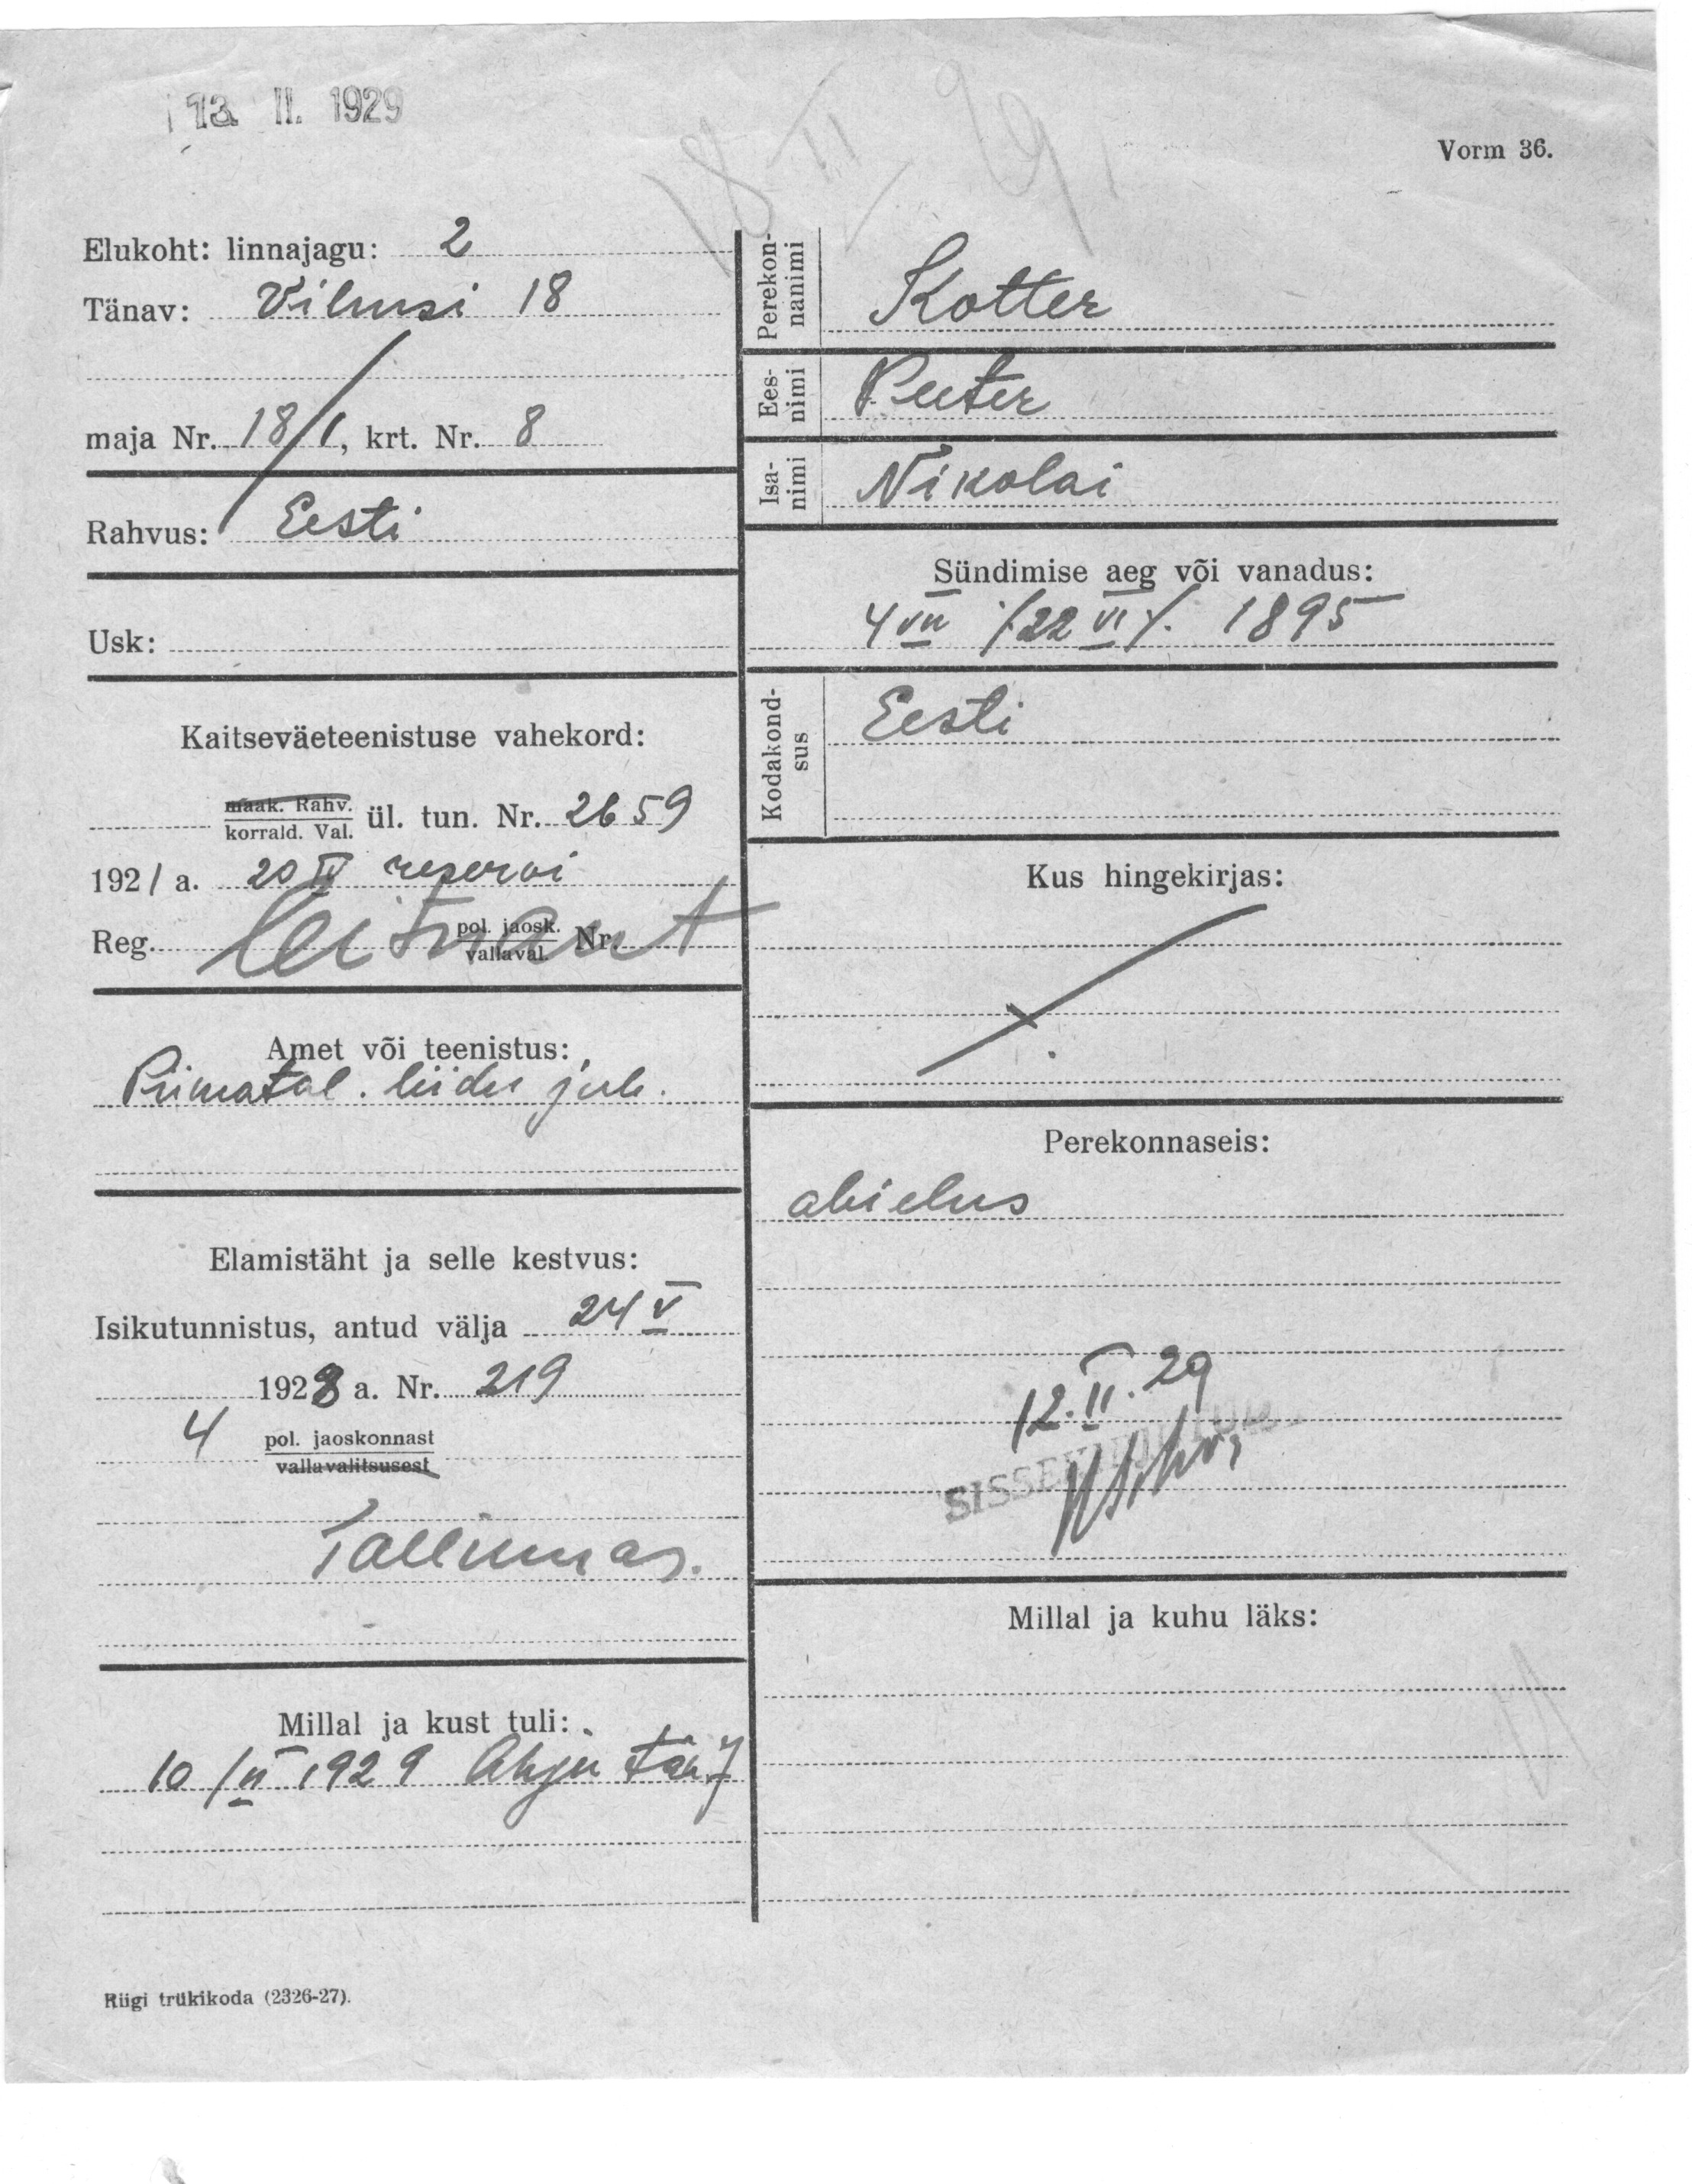 13. II. 1929
18 II 29
Vorm 36.
Elukoht: linnajagu: 2
Tänav: Vilmsi 18
maja Nr. 18/1, krt. Nr. 8
Rahvus: Eesti
Usk:
Kaitseväeteenistuse vahekord:
maak. Rahv.
korrald. Val. ül. tun. Nr. 2659
1921 a. 20 IV reservi
Reg. leitnant pol. jaosk. Nr.
vallaval.
Amet või teenistus:
Piimatal. liidu juh.
Elamistäht ja selle kestvus:
Isikutunnistus, antud välja 24 V
1928 a. Nr. 219
4 pol. jaoskonnast
vallavalitsusest
Tallinnas.
Millal ja kust tuli:
10/II 1929
Riigi trükikoda (2326-27).
Perekonnanimi Kotter
Eesnimi Peeter
Isanimi Nikolai
Sündimise aeg või vanadus:
4 VII /22 VI/. 1895
Kodakondsus Eesti
Kus hingekirjas:
Perekonnaseis:
abielus
12. II. 29
Millal ja kuhu läks: